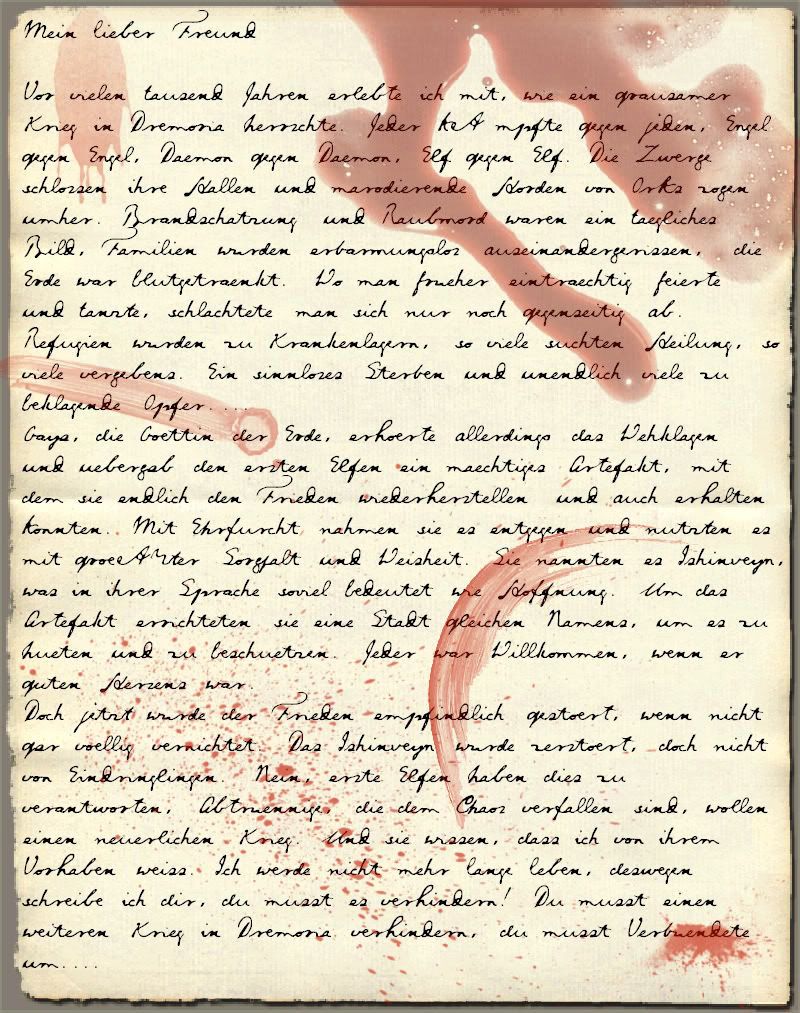 Mein lieber Freund
Vor vielen tausend Jahren erlebte ich mit, wie ein grausamer
Krieg in Dremoria herrschte. Jeder kÃ mpfte gegen jeden, Engel
gegen Engel, Daemon gegen Daemon, Elf gegen Elf. Die Zwerge
schlossen ihre Hallen und marodierende Horden von Orks zogen
umher. Brandschatzung und Raubmord waren ein taegliches
Bild, Familien wurden erbarmungslos auseinandergerissen, die
Erde war blutgetraenkt. Wo man frueher eintraechtig feierte
und tanzte, schlachtete man sich nur noch gegenseitig ab.
Refugien wurden zu Krankenlagern, so viele suchten Heilung, so
viele vergebens. Ein sinnloses Sterben und unendlich viele zu
beklagende Opfer....
Gaya, die Goettin der Erde, erhoerte allerdings das Wehklagen
und uebergab den ersten Elfen ein maechtiges Artefakt, mit
dem sie endlich den Frieden wiederherstellen und auch erhalten
konnten. Mit Ehrfurcht nahmen sie es entgegen und nutzten es
mit Sorgfalt und Weisheit. Sie nannten es Ishinveyn,
was in ihrer Sprache soviel bedeutet wie Hoffnung. Um das
Artefakt errichteten sie eine Stadt gleichen Namens, um es zu
hueten und zu beschuetzen. Jeder war Willkommen, wenn er
guten Herzens war.
Doch jetzt wurde der Frieden empfindlich gestoert, wenn nicht
gar voellig vernichtet. Das Ishinveyn wurde zerstoert, doch nicht
von Eindringlingen. Nein, erste Elfen haben dies zu
verantworten, Abtruennige, die dem Chaos verfallen sind, wollen
einen neuerlichen Krieg. Und sie wissen, dass ich von ihrem
Vorhaben weiss. Ich werde nicht mehr lange leben, deswegen
schreibe ich dir, du musst es verhindern! Du musst einen
weiteren Krieg in Dremoria verhindern, du musst Verbuendete
um....